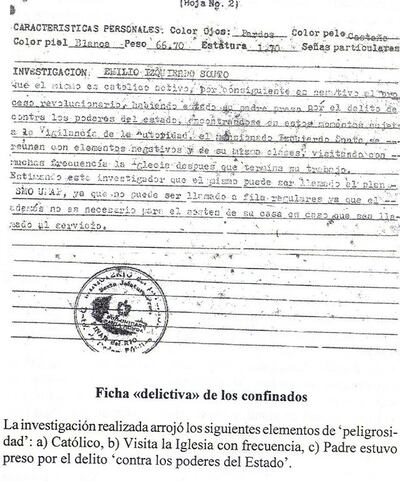 (Hoja No. 2)
CARACTERISTICAS PERSONALES: Color Ojos: Pardos Color pelo Castaño
Color piel Blanca Peso 66.70 Estatura 1.70 Señas particulares
INVESTIGACION: EMILIO IZQUIERDO SOUTO
Que el mismo es catolico activo, por consiguiente es negativo al pro
ceso revolucionario, habiendo estado su padre preso por el delito de
contra los poderes del estado, encontrandose en estos momentos sujet
a la vigilancia de la autoridad, el mencionado Izquierdo Souto se --
reunen con elementos negativos y de su misma clases, visitando con --
muchas frecuencia la iglecia despues que termina su trabajo.
Estimando este investigador que el mismo puede ser llamado el plan --
SMO UMAP, ya que no puede ser llamado a fila regulares ya que el --
además no es necesario para el sosten de su casa en caso que sea lla-
mado al servicio.
MINISTERIO
PINAR del RIO
Ficha «delictiva» de los confinados
La investigación realizada arrojó los siguientes elementos de ‘peligrosi-
dad’: a) Católico, b) Visita la Iglesia con frecuencia, c) Padre estuvo
preso por el delito ‘contra los poderes del Estado’.